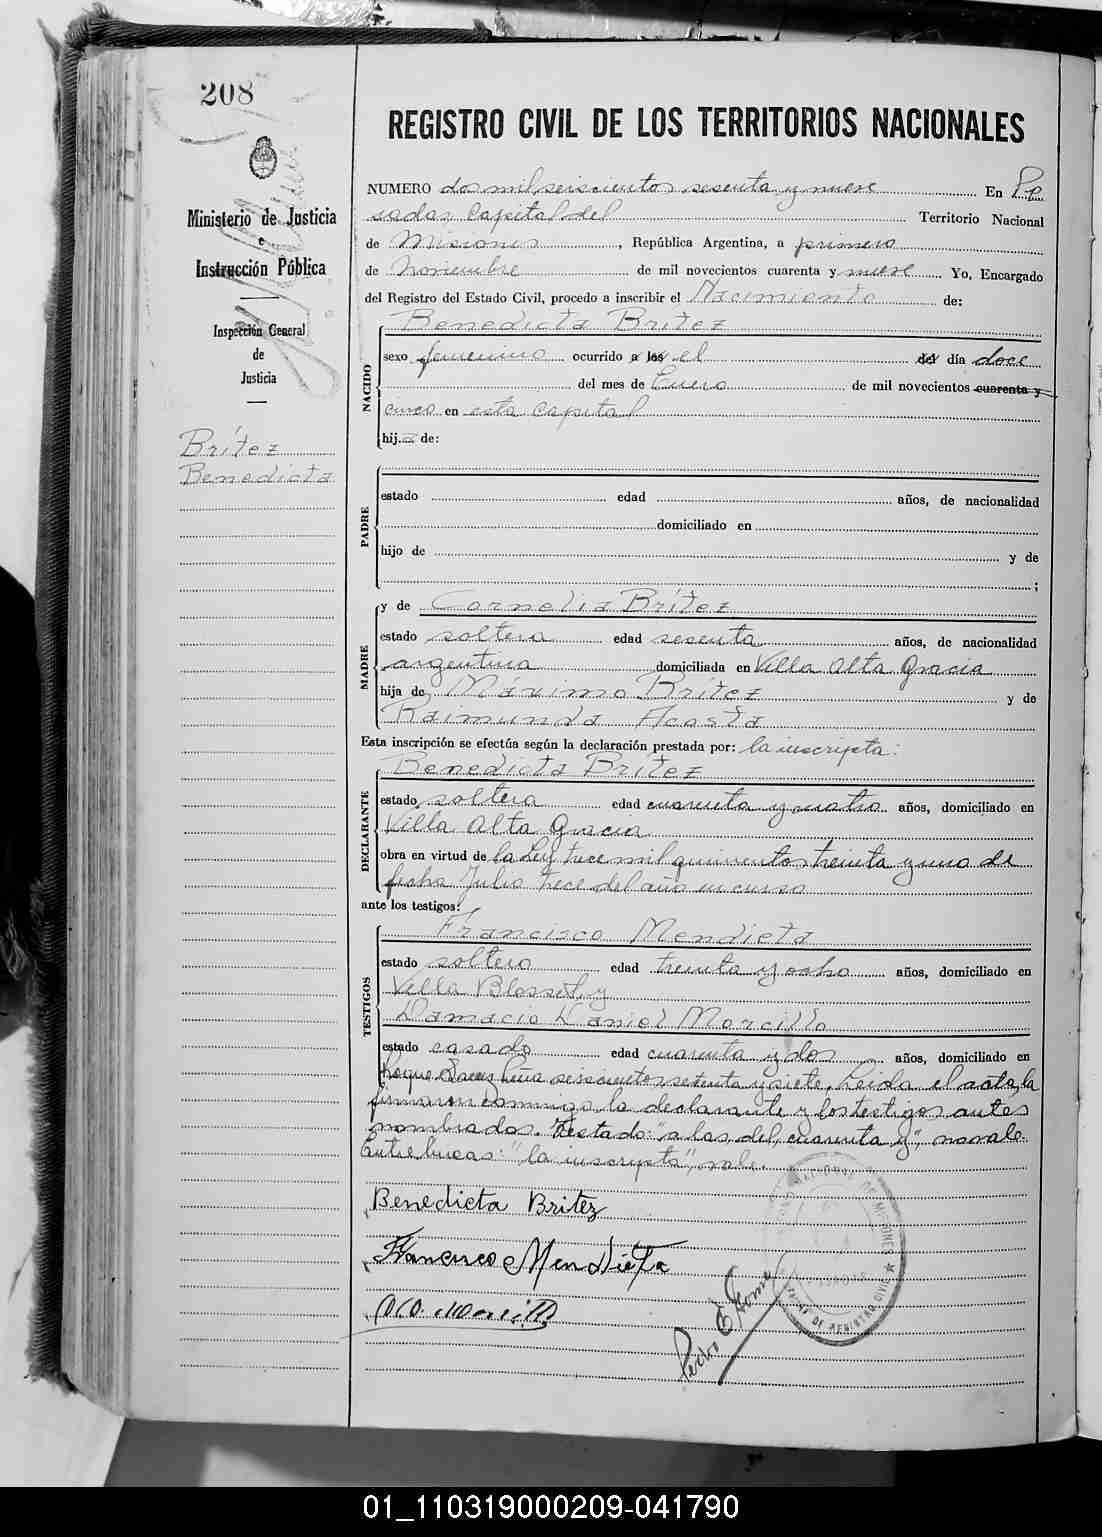 208
Ministerio de Justicia
e
Instrucción Pública
Inspección General
de
Justicia
Brítez
Benedicta
REGISTRO CIVIL DE LOS TERRITORIOS NACIONALES
NUMERO dos mil seiscientos sesenta y nueve En Po
sadas Capital del Territorio Nacional
de Misiones, República Argentina, a primero
de Noviembre de mil novecientos cuarenta y nueve Yo, Encargado
del Registro del Estado Civil, procedo a inscribir el Nacimiento de:
NACIDO
Benedicta Brítez
sexo femenino ocurrido a las el del día doce
del mes de Enero de mil novecientos cuarenta y
cinco en esta Capital
hija de:
PADRE
estado edad años, de nacionalidad
domiciliado en
hijo de y de
;
MADRE
y de Cornelia Brítez
estado soltera edad sesenta años, de nacionalidad
argentina domiciliada en Villa Alta Gracia
hija de Máximo Brítez y de
Raimunda Acosta
Esta inscripción se efectúa según la declaración prestada por: la inscripta:
DECLARANTE
Benedicta Brítez
estado soltera edad cuarenta y cuatro años, domiciliado en
Villa Alta Gracia
obra en virtud de la Ley trece mil quinientos treinta y uno de
fecha Julio trece del año en curso
ante los testigos:
TESTIGOS
Francisco Mendieta
estado soltero edad treinta y ocho años, domiciliado en
Villa Blosset, y
Damacio Daniel Morcillo
estado casado edad cuarenta y dos años, domiciliado en
Roque Saenz Peña seiscientos setenta y siete. Leida el acta, la
firmaron conmigo la declarante y los testigos antes
nombrados. Testado: "a las, del, cuarenta y", no vale.
Entre lineas: "la inscripta", vale.
Benedicta Britez
Francisco Mendieta
Pedro E. Gome
REGISTRO CIVIL
01_110319000209-041790